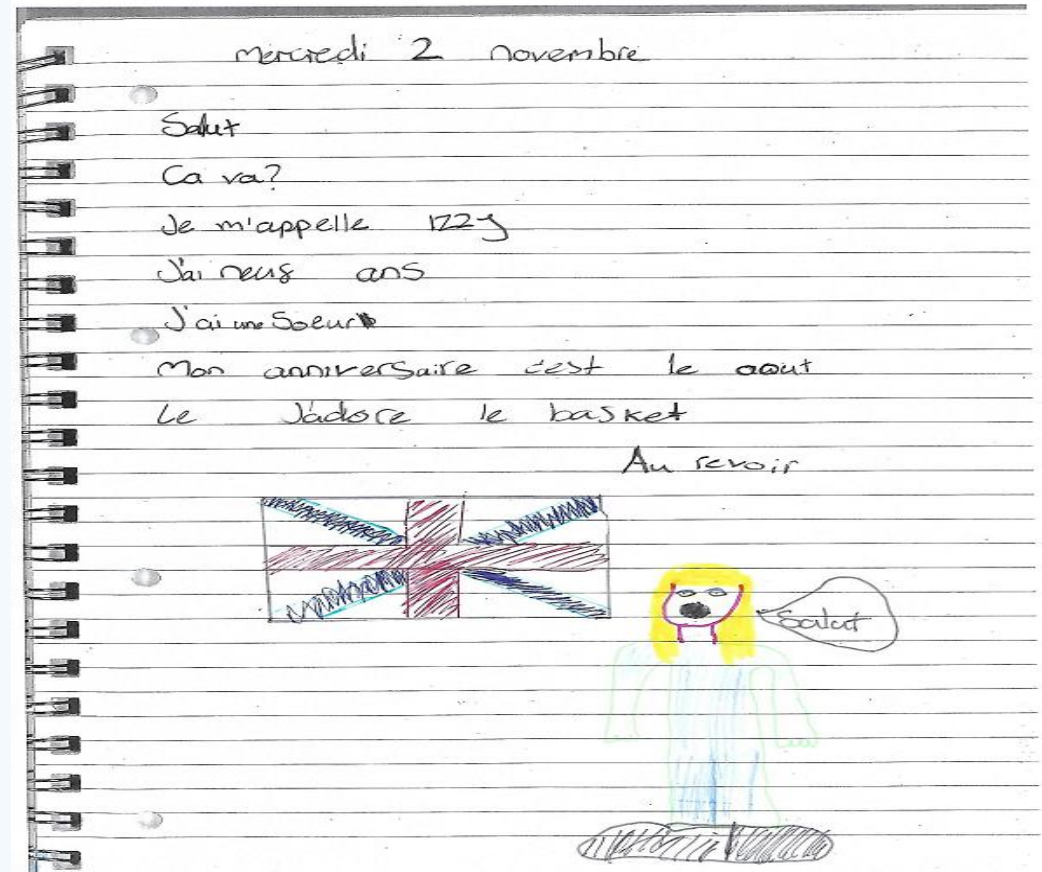 Mercredi 2 novembre
Salut
Ca va?
Je m'appelle Izzy
J'ai neuf ans
J'ai une Soeur
Mon anniversaire c'est le aout
Le J'adore le basket
Au revoir
Salut